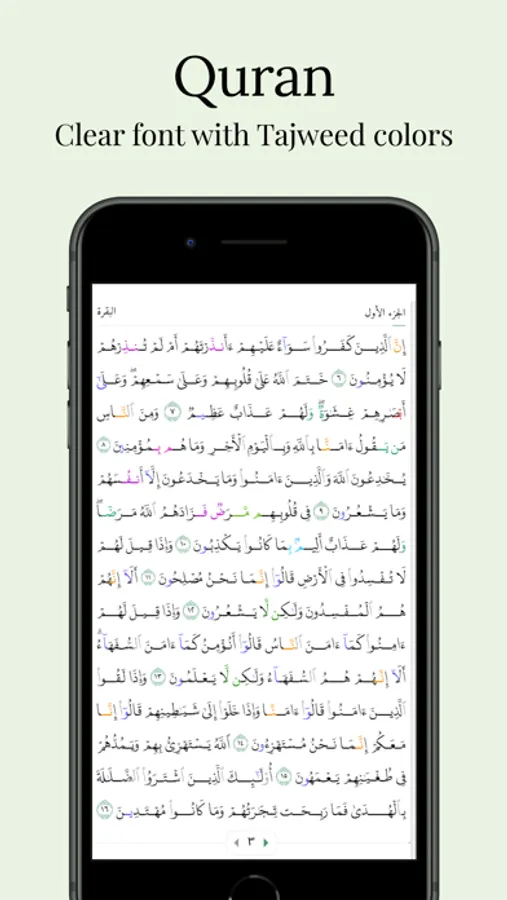 Quran
Clear font with Tajweed colors
الجزء الأول
البقرة
إِنَّ ٱلَّذِينَ كَفَرُوا۟ سَوَآءٌ عَلَيْهِمْ ءَأَنذَرْتَهُمْ أَمْ لَمْ تُنذِرْهُمْ
لَا يُؤْمِنُونَ ٦ خَتَمَ ٱللَّهُ عَلَىٰ قُلُوبِهِمْ وَعَلَىٰ سَمْعِهِمْ ۖ وَعَلَىٰٓ
أَبْصَـٰرِهِمْ غِشَـٰوَةٌ ۖ وَلَهُمْ عَذَابٌ عَظِيمٌ ٧ وَمِنَ ٱلنَّاسِ
مَن يَقُولُ ءَامَنَّا بِٱللَّهِ وَبِٱلْيَوْمِ ٱلْـَٔاخِرِ وَمَا هُم بِمُؤْمِنِينَ ٨
يُخَـٰدِعُونَ ٱللَّهَ وَٱلَّذِينَ ءَامَنُوا۟ وَمَا يَخْدَعُونَ إِلَّآ أَنفُسَهُمْ
وَمَا يَشْعُرُونَ ٩ فِى قُلُوبِهِم مَّرَضٌ فَزَادَهُمُ ٱللَّهُ مَرَضًا ۖ
وَلَهُمْ عَذَابٌ أَلِيمٌۢ بِمَا كَانُوا۟ يَكْذِبُونَ ١٠ وَإِذَا قِيلَ لَهُمْ
لَا تُفْسِدُوا۟ فِى ٱلْأَرْضِ قَالُوٓا۟ إِنَّمَا نَحْنُ مُصْلِحُونَ ١١ أَلَآ إِنَّهُمْ
هُمُ ٱلْمُفْسِدُونَ وَلَـٰكِن لَّا يَشْعُرُونَ ١٢ وَإِذَا قِيلَ لَهُمْ
ءَامِنُوا۟ كَمَآ ءَامَنَ ٱلنَّاسُ قَالُوٓا۟ أَنُؤْمِنُ كَمَآ ءَامَنَ ٱلسُّفَهَآءُ ۗ
أَلَآ إِنَّهُمْ هُمُ ٱلسُّفَهَآءُ وَلَـٰكِن لَّا يَعْلَمُونَ ١٣ وَإِذَا لَقُوا۟
ٱلَّذِينَ ءَامَنُوا۟ قَالُوٓا۟ ءَامَنَّا وَإِذَا خَلَوْا۟ إِلَىٰ شَيَـٰطِينِهِمْ قَالُوٓا۟ إِنَّا
مَعَكُمْ إِنَّمَا نَحْنُ مُسْتَهْزِءُونَ ١٤ ٱللَّهُ يَسْتَهْزِئُ بِهِمْ وَيَمُدُّهُمْ
فِى طُغْيَـٰنِهِمْ يَعْمَهُونَ ١٥ أُو۟لَـٰٓئِكَ ٱلَّذِينَ ٱشْتَرَوُا۟ ٱلضَّلَـٰلَةَ
بِٱلْهُدَىٰ فَمَا رَبِحَت تِّجَـٰرَتُهُمْ وَمَا كَانُوا۟ مُهْتَدِينَ ١٦
٣